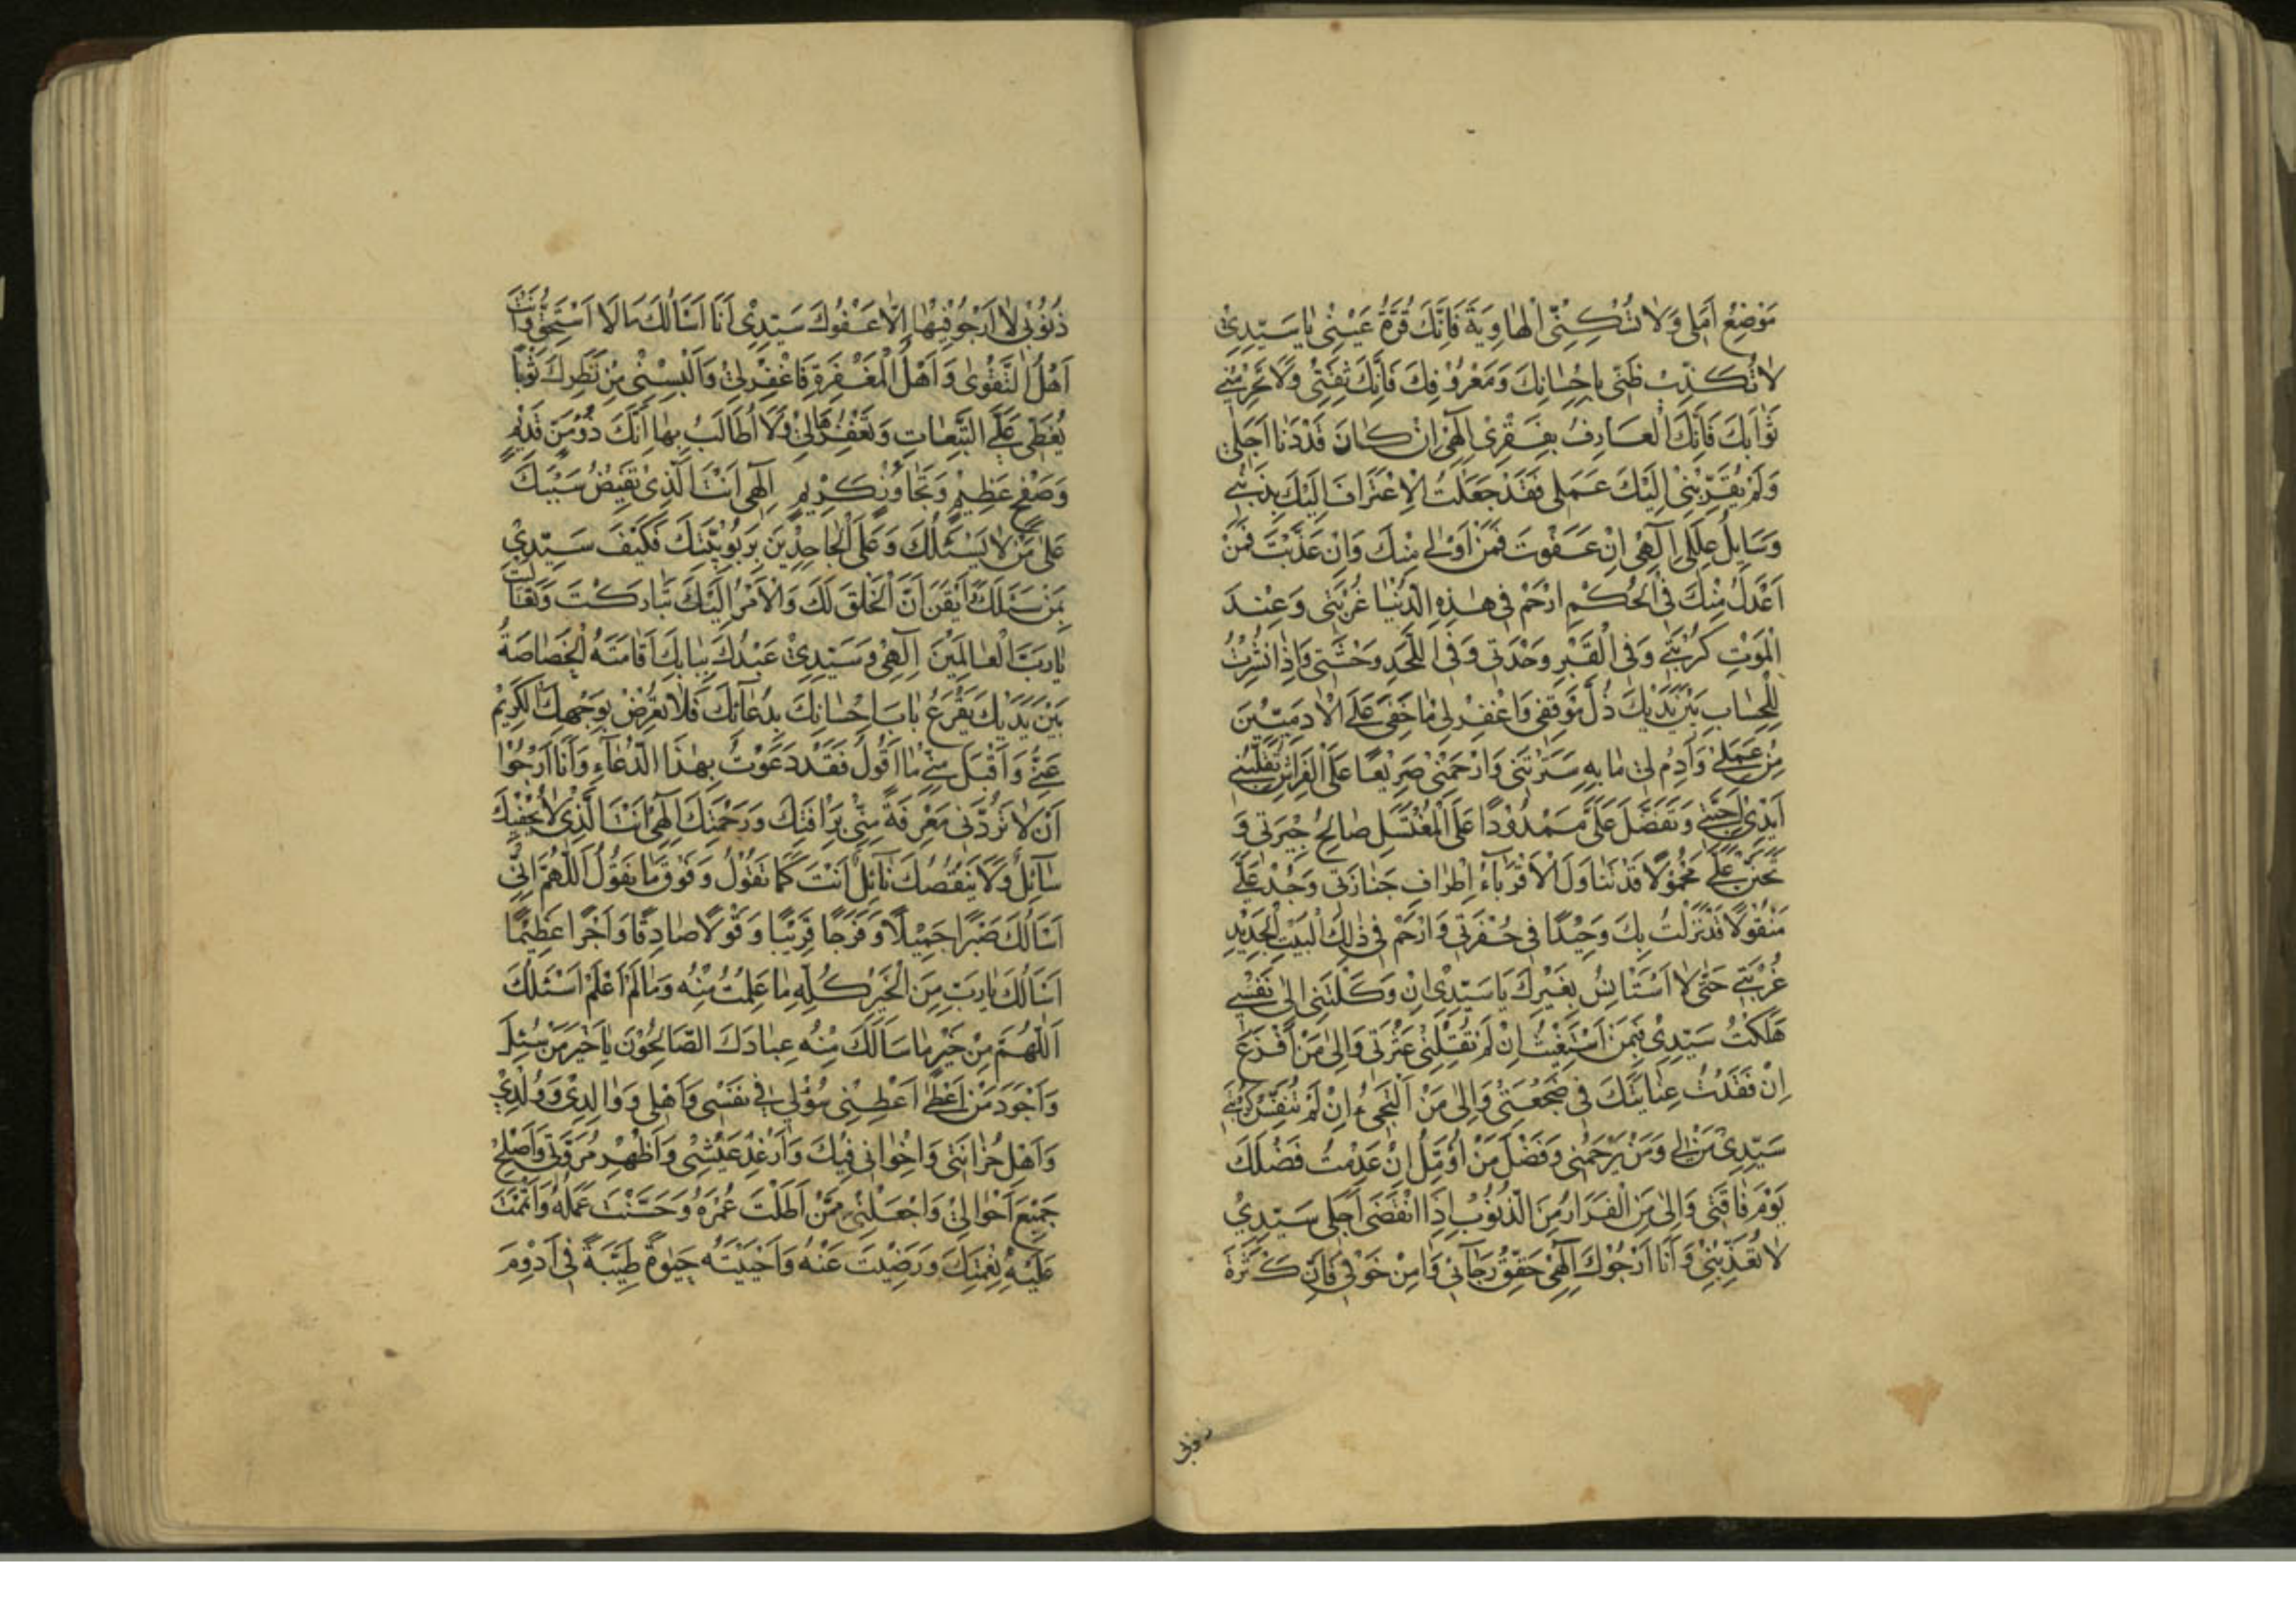 مَوْضِعُ اَمَلِى وَلَا تُسْكِنِّى الْهَاوِيَةَ فَاِنَّكَ قُرَّةُ عَيْنِى يَا سَيِّدِى
لَا تُكَذِّبْ ظَنِّى بِاِحْسَانِكَ وَمَعْرُوْفِكَ فَاِنَّكَ ثِقَتِىْ وَلَا تَحْرِمْنِى
ثَوَابَكَ فَاِنَّكَ الْعَارِفُ بِفَقْرِىْ اِلٰهِىْ اِنْ كَانَ قَدْ دَنَا اَجَلِى
وَلَمْ يُقَرِّبْنِىْ اِلَيْكَ عَمَلِى فَقَدْ جَعَلْتُ الْاِعْتِرَافَ اِلَيْكَ بِذَنْبِى
وَسَايِلَ عِلَلِى اِلٰهِىْ اِنْ عَفَوْتَ فَمَنْ اَوْلٰى مِنْكَ وَاِنْ عَذَّبْتَ فَمَنْ
اَعْدَلُ مِنْكَ فِى الْحُكْمِ ارْحَمْ فِى هٰذِهِ الدُّنْيَا غُرْبَتِى وَعِنْدَ
الْمَوْتِ كُرْبَتِى وَفِى الْقَبْرِ وَحْدَتِى وَفِى اللَّحْدِ وَحْشَتِى وَاِذَا نُشِرْتُ
لِلْحِسَابِ بَيْنَ يَدَيْكَ ذُلَّ مَوْقِفِى وَاغْفِرْ لِى مَا خَفِىَ عَلَى الْاٰدَمِيِّيْنَ
مِنْ عَمَلِى وَاَدِمْ لِىْ مَا بِهِ سَتَرْتَنِى وَارْحَمْنِىْ صَرِيْعًا عَلَى الْفِرَاشِ تُقَلِّبُنِى
اَيْدِىْ اَحِبَّتِى وَتَفَضَّلْ عَلَىَّ مَمْدُوْدًا عَلَى الْمُغْتَسَلِ صَالِحُ جِيْرَتِى وَ
تَحَنَّنْ عَلَىَّ مَحْمُوْلًا قَدْ تَنَاوَلَ الْاَقْرِبَآءُ اَطْرَافَ جَنَازَتِى وَجُدْ عَلَىَّ
مَنْقُوْلًا قَدْ نَزَلْتُ بِكَ وَحِيْدًا فِى حُفْرَتِى وَارْحَمْ فِى ذٰلِكَ الْبَيْتِ الْجَدِيْدِ
غُرْبَتِى حَتّٰى لَا اَسْتَانِسَ بِغَيْرِكَ يَا سَيِّدِىْ اِنْ وَكَلْتَنِى اِلٰى نَفْسِى
هَلَكْتُ سَيِّدِىْ فَبِمَنْ اَسْتَغِيْثُ اِنْ لَمْ تُقِلْنِى عَثْرَتِى وَاِلٰى مَنْ اَفْزَعُ
اِنْ فَقَدْتُ عِنَايَتَكَ فِى ضَجْعَتِىْ وَاِلٰى مَنْ اَلْتَجِىءُ اِنْ لَمْ تُنَفِّسْ كُرْبَتِى
سَيِّدِىْ مَنْ لِى وَمَنْ يَرْحَمُنِى وَفَضْلَ مَنْ اُؤَمِّلُ اِنْ عَدِمْتُ فَضْلَكَ
يَوْمَ فَاقَتِى وَاِلٰى مَنِ الْفِرَارُ مِنَ الذُّنُوْبِ اِذَا انْقَضٰى اَجَلِى سَيِّدِىْ
لَا تُعَذِّبْنِىْ وَاَنَا اَرْجُوْكَ اِلٰهِىْ حَقِّقْ رَجَآئِىْ وَاٰمِنْ خَوْفِى فَاِنَّ كَثْرَةَ
ذنوبى
ذُنُوْبِىْ لَا اَرْجُوْ فِيْهَا اِلَّا عَفْوَكَ سَيِّدِىْ اَنَا اَسْاَلُكَ مَا لَا اَسْتَحِقُّ وَاَنْتَ
اَهْلُ التَّقْوٰى وَاَهْلُ الْمَغْفِرَةِ فَاغْفِرْ لِىْ وَاَلْبِسْنِىْ مِنْ نَظَرِكَ ثَوْبًا
يُغَطِّى عَلَىَّ التَّبِعَاتِ وَتَغْفِرُهَا لِىْ وَلَا اُطَالَبُ بِهَا اِنَّكَ ذُوْ مَنٍّ قَدِيْمٍ
وَصَفْحٍ عَظِيْمٍ وَتَجَاوُزٍ كَرِيْمٍ اِلٰهِى اَنْتَ الَّذِىْ تُفِيْضُ سَيْبَكَ
عَلٰى مَنْ لَا يَسْئَلُكَ وَعَلَى الْجَاحِدِيْنَ بِرَبُوْبِيَّتِكَ فَكَيْفَ سَيِّدِىْ
بِمَنْ سَئَلَكَ وَاَيْقَنَ اَنَّ الْخَلْقَ لَكَ وَالْاَمْرَ اِلَيْكَ تَبَارَكْتَ وَتَعَالَيْتَ
يَا رَبَّ الْعَالَمِيْنَ اِلٰهِىْ وَسَيِّدِىْ عَبْدُكَ بِبَابِكَ اَقَامَتْهُ الْخَصَاصَةُ
بَيْنَ يَدَيْكَ يَقْرَعُ بَابَ اِحْسَانِكَ بِدُعَآئِكَ فَلَا تُعْرِضْ بِوَجْهِكَ الْكَرِيْمِ
عَنِّى وَاَقْبَلْ مِنِّى مَا اَقُوْلُ فَقَدْ دَعَوْتُ بِهٰذَا الدُّعَآءِ وَاَنَا اَرْجُوْا
اَنْ لَا تَرُدَّنِى مَعْرِفَةً مِنِّىْ بِرَافَتِكَ وَرَحْمَتِكَ اِلٰهِىْ اَنْتَ الَّذِىْ لَا يُحْفِيْكَ
سَآئِلٌ وَلَا يَنْقُصُكَ نَآئِلٌ اَنْتَ كَمَا تَقُوْلُ وَفَوْقَ مَا نَقُوْلُ اَللّٰهُمَّ اِنِّى
اَسْاَلُكَ صَبْرًا جَمِيْلًا وَفَرَجًا قَرِيْبًا وَقَوْلًا صَادِقًا وَاَجْرًا عَظِيْمًا
اَسْاَلُكَ يَا رَبِّ مِنَ الْخَيْرِ كُلِّهِ مَا عَلِمْتُ مِنْهُ وَمَا لَمْ اَعْلَمْ اَسْئَلُكَ
اَللّٰهُمَّ مِنْ خَيْرِ مَا سَاَلَكَ مِنْهُ عِبَادُكَ الصَّالِحُوْنَ يَا خَيْرَ مَنْ سُئِلَ
وَاَجْوَدَ مَنْ اَعْطٰى اَعْطِنِى سُؤْلِى فِى نَفْسِى وَاَهْلِى وَوَالِدِىْ وَوُلْدِىْ
وَاَهْلِ حُزَانَتِى وَاِخْوَانِى فِيْكَ وَاَرْغِدْ عَيْشِىْ وَاَظْهِرْ مُرَوَّتِى وَاَصْلِحْ
جَمِيْعَ اَحْوَالِىْ وَاجْعَلْنِىْ مِمَّنْ اَطَلْتَ عُمْرَهُ وَحَسَّنْتَ عَمَلَهُ وَاَتْمَمْتَ
عَلَيْهِ نِعْمَتَكَ وَرَضِيْتَ عَنْهُ وَاَحْيَيْتَهُ حَيٰوةً طَيِّبَةً فِى اَدْوَمِ